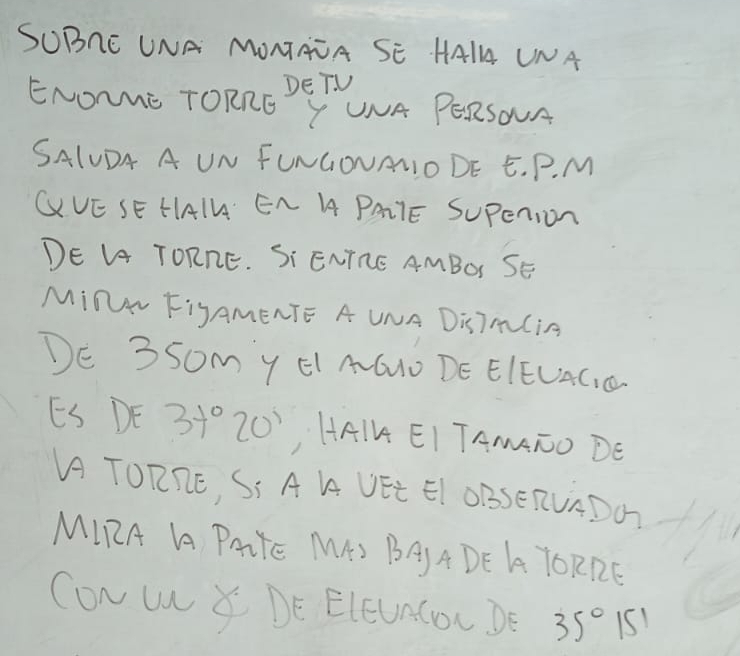 SOBRE UNA MONTAÑA SE HALLA UNA
ENORME TORRE DE TV Y UNA PERSONA
SALUDA A UN FUNCIONARIO DE E.P.M
QUE SE HALLA EN LA PARTE SUPERIOR
DE LA TORRE. SI ENTRE AMBOS SE
MIRAN FIJAMENTE A UNA DISTANCIA
DE 350m Y EL ANGULO DE ELEVACIO
ES DE 37° 20', HALLA EL TAMAÑO DE
LA TORRE, SI A LA VEZ EL OBSERVADOR
MIRA LA PARTE MAS BAJA DE LA TORRE
CON UN ∡ DE ELEVACION DE 35° 15'